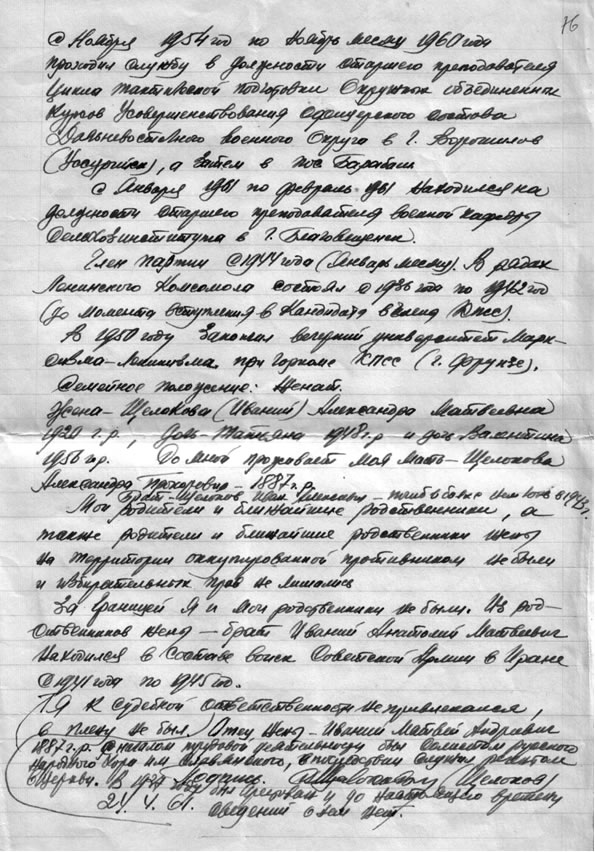 76
с Ноября 1954 год по Ноябрь месяц 1960 года
проходил службу в должности старшего преподавателя
Цикла тактической подготовки Окружных объединенных
Курсов Усовершенствования Офицерского состава
Дальневосточного военного Округа в г. Ворошилов
(Уссурийск), а затем в пос Барабаш.
с Января 1961 по февраль 1961 Находился на
должности старшего преподавателя военной кафедры
Сельхозинститута в г. Благовещенск.
Член партии с 1944 года (Январь месяц). В рядах
Ленинского Комсомола состоял с 1936 года по 1942 год
(до момента вступления в Кандидаты в члены КПСС).
В 1950 году Закончил вечерний университет Марк-
сизма-Ленинизма при Горкоме КПСС (г. Фрунзе).
Семейное положение: Женат.
Жена - Щелокова (Иваний) Александра Матвеевна
1920 г.р., дочь - Татьяна 1948 г.р и дочь Валентина
1956 г.р. Со мной проживает моя Мать - Щелокова
Александра Прохоровна - 1887 г.р.
Брат - Щелоков Иван - погиб в боях в 1943 г.
Мои родители и ближайшие родственники, а
также родители и ближайшие родственники жены
на территории оккупированной противником не были
и избирательных прав не лишались
За границей Я и Мои родственники не были. Из род-
ственников жены - брат Иваний Анатолий Матвеевич
находился в Составе войск Советской Армии в Иране
с 1941 года по 1945 год.
Я К Судебной ответственности не привлекался,
в плену не был. Отец жены - Иваний Матвей Андреевич
1887 г.р. с началом трудовой деятельности был Солистом русского
народного хора им Славянского, впоследствии служил регентом
в Церкви. В 1937 году был арестован и до настоящего времени
Сведений о нем нет.
Подпись. (Щелоков)
24. 4. 61.